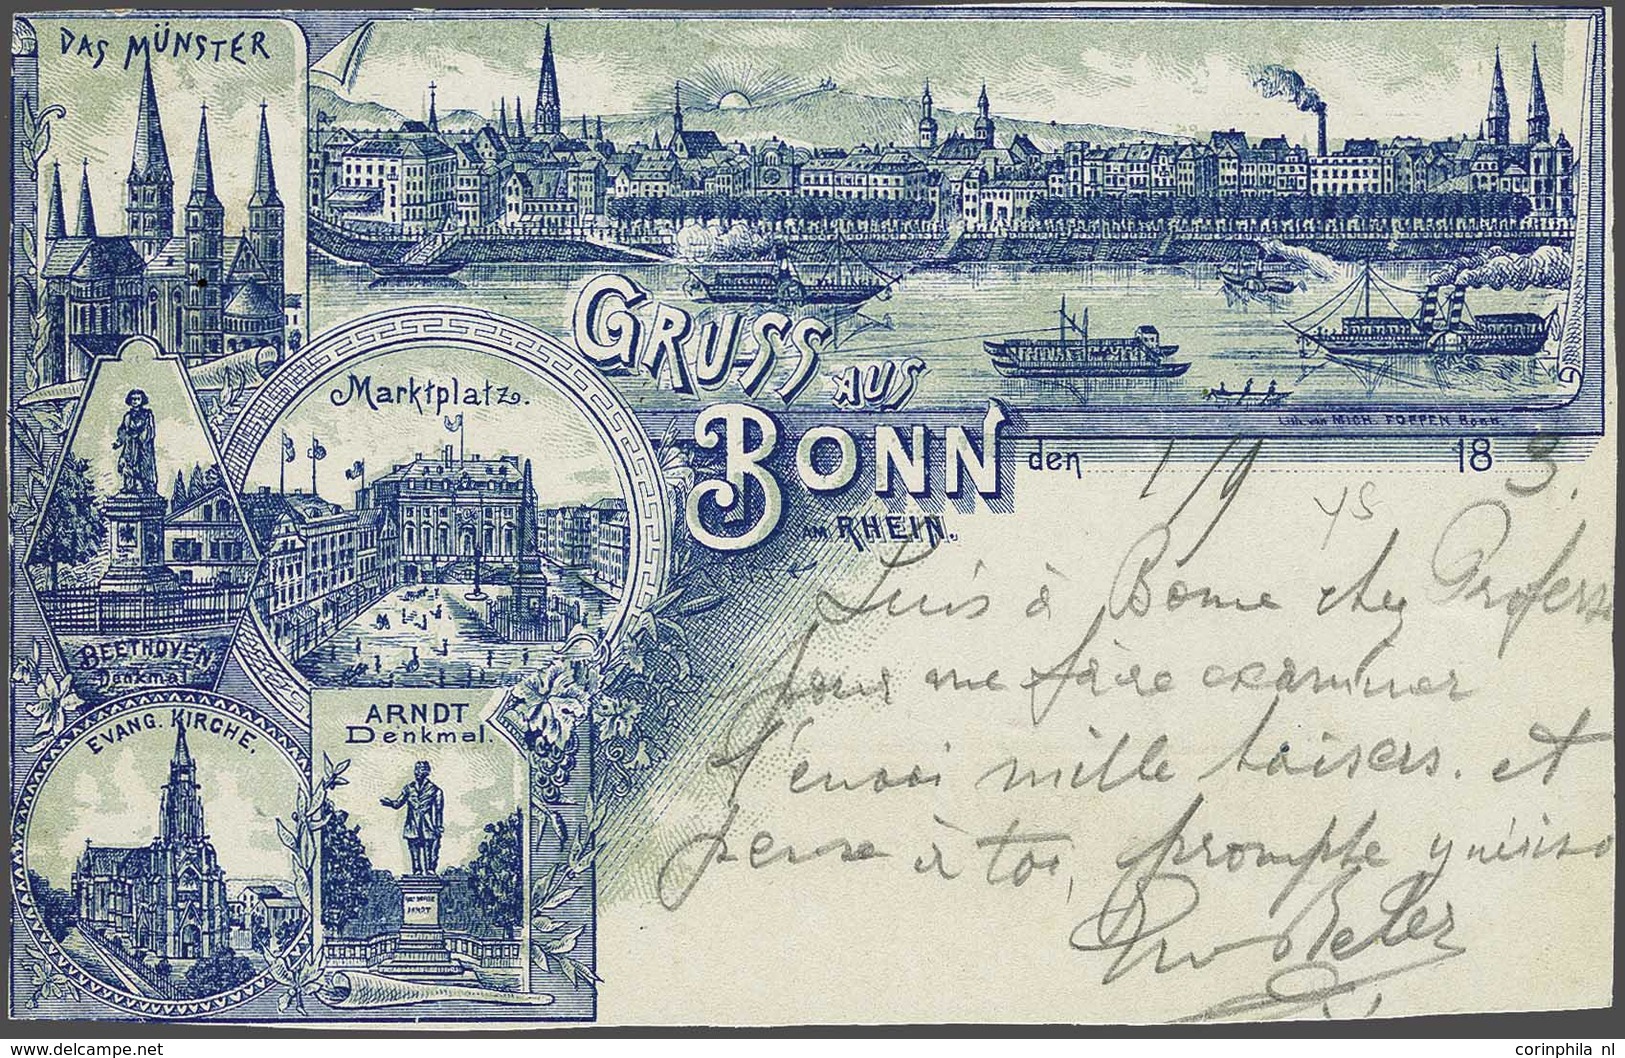 DAS MÜNSTER
GRUSS AUS
BONN
AM RHEIN.
Lith. von MICH. FOPPEN Bonn.
den 1/9 18
Marktplatz.
BEETHOVEN
Denkmal
EVANG. KIRCHE.
ARNDT
Denkmal.
ARNDT
Suis à Bonne chez Profess
pour me faire examiner
J'envoi mille baisers. et
pense à toi, prompte guériso
corinphila nl